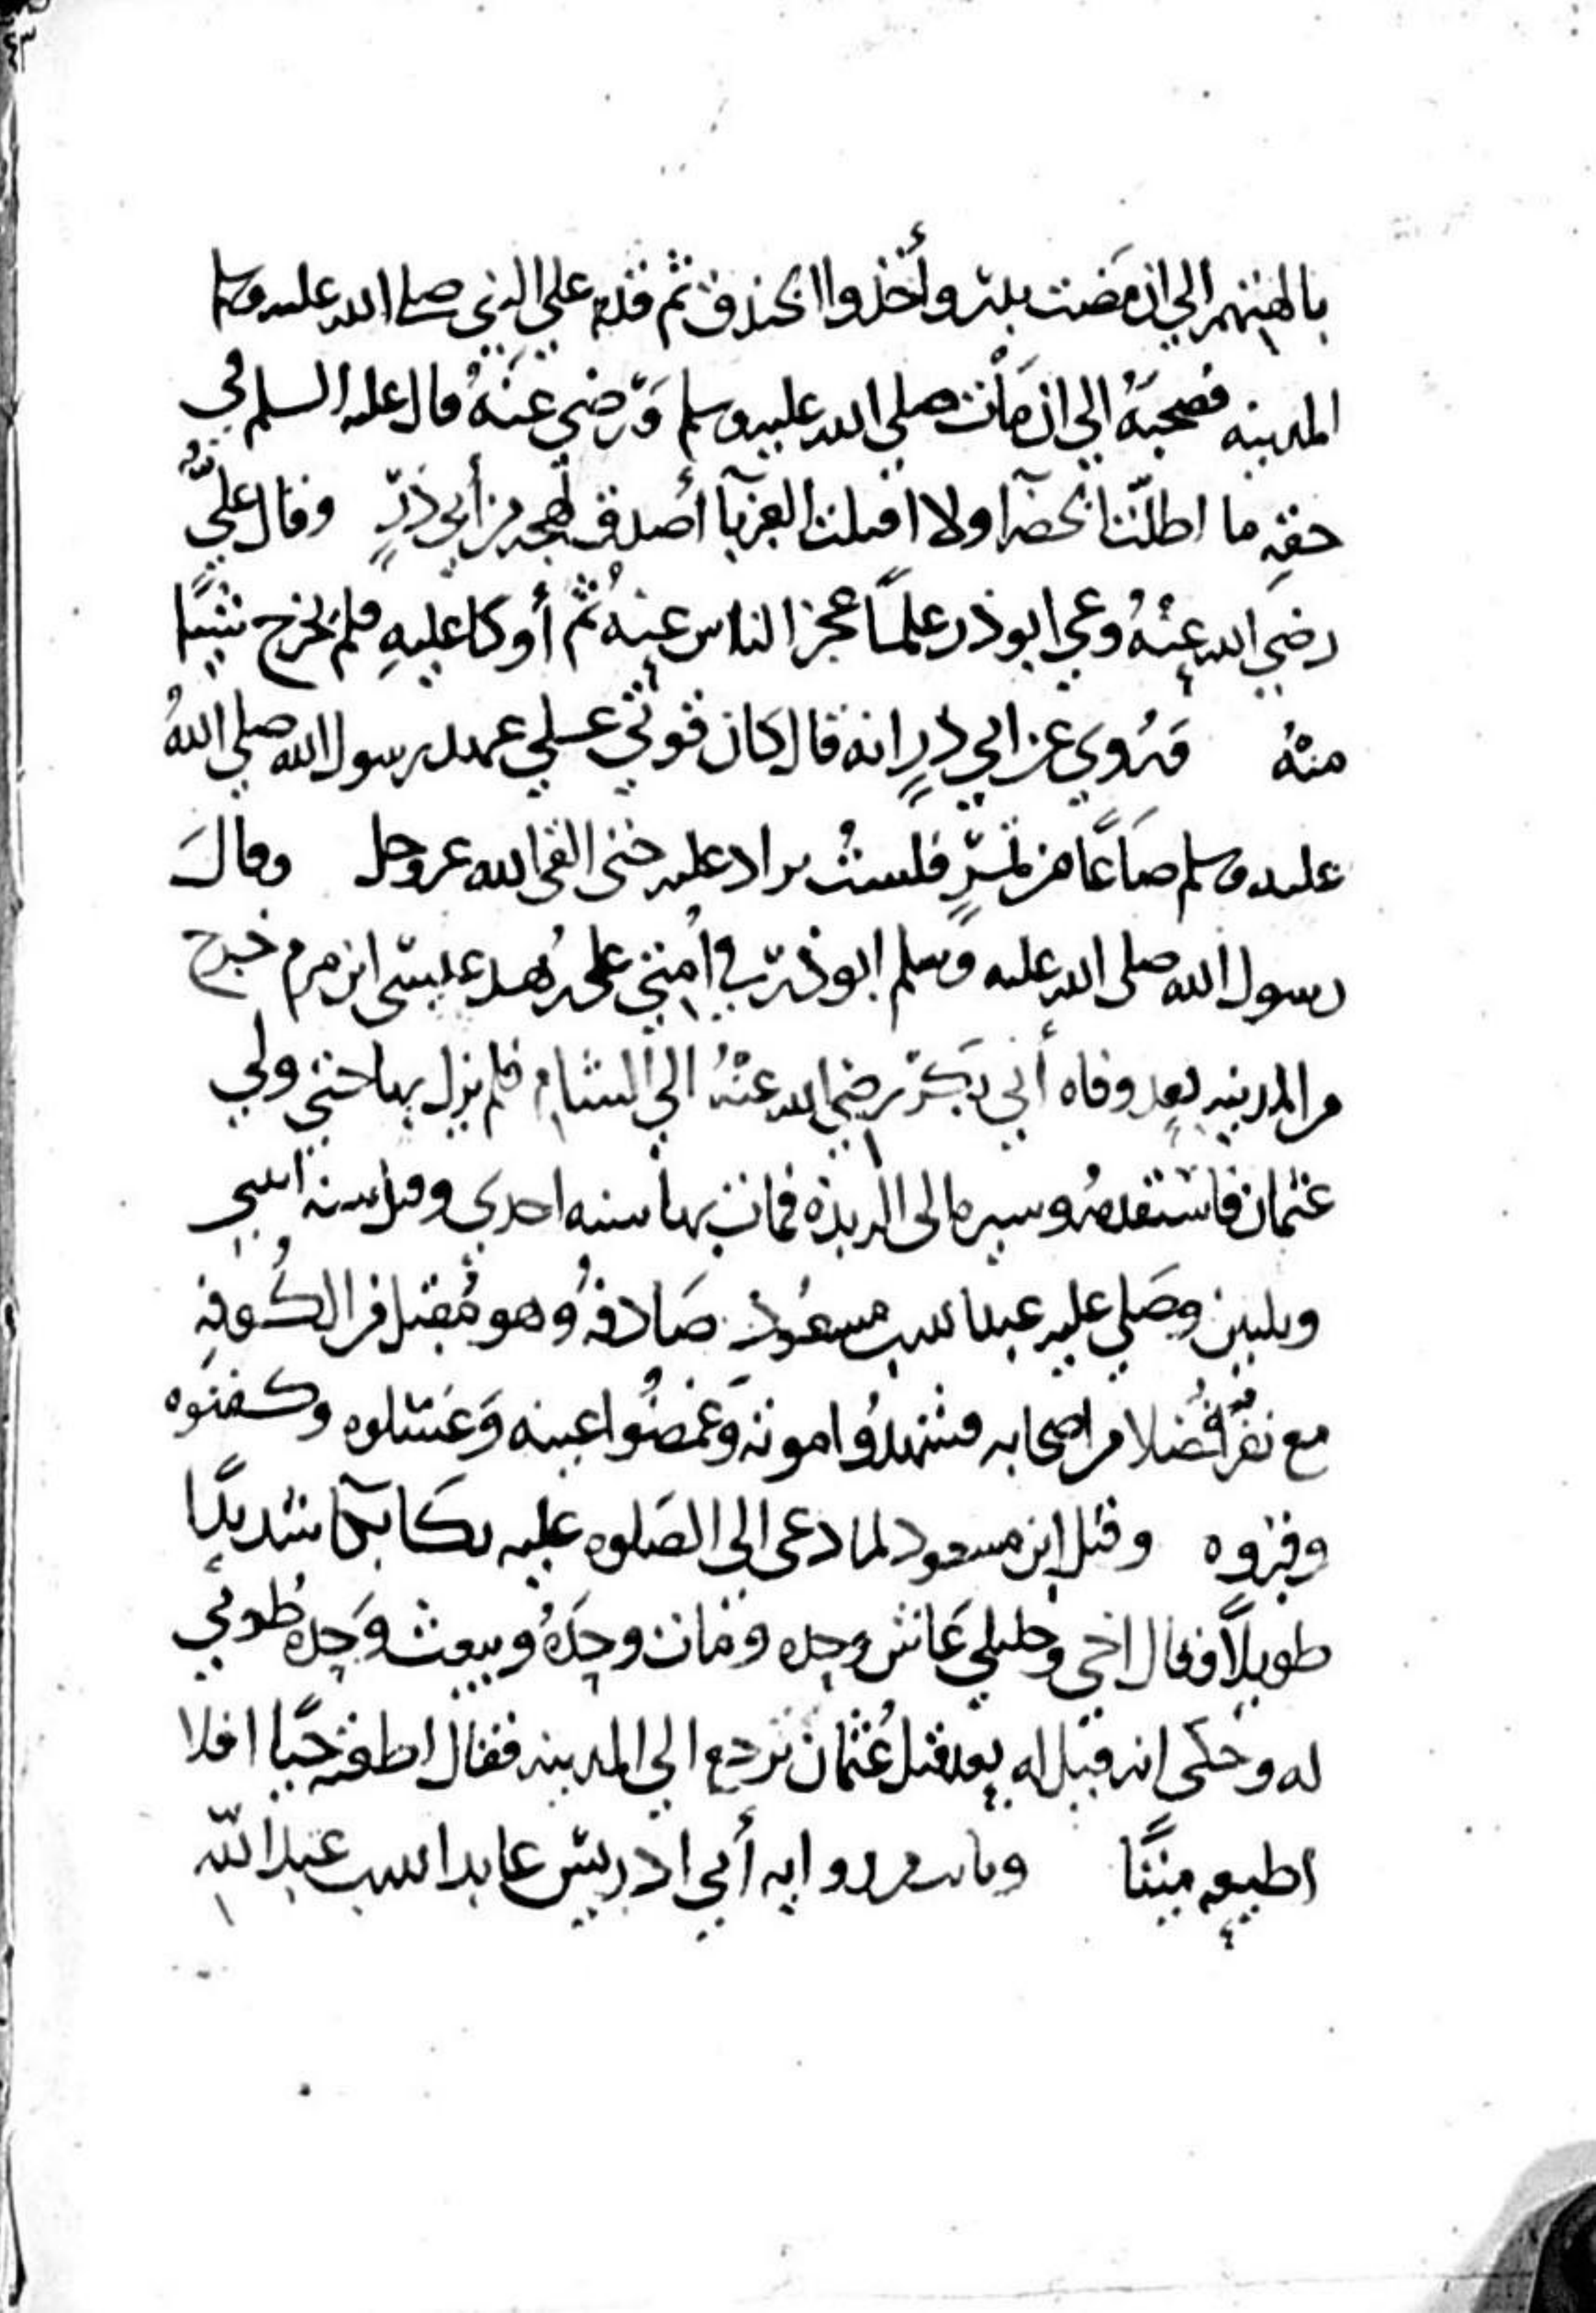 بالهتهم الي ان مضت بدر وأحد والخندق ثم قدم علي النبي صلى الله عليه وسلم
المدينه فصحبه الي ان مات صلي الله عليه وسلم ورضي عنه قال عليه السلم في
حقه ما اظلت الخضرا ولا اقلت الغبرآ أصدق لهجه من أبي ذر وقال علي
رضي الله عنه وعي ابو ذر علما عجز الناس عنه ثم أوكا عليه فلم يخرج شيا
منه وروي عن ابي ذر انه قال كان قوتي علي عهد رسول الله صلي الله
عليه وسلم صاعا من تمر فلست بزاد عليه حتى القى الله عز وجل وقال
رسول الله صلى الله عليه وسلم ابو ذر في امتي على زهد عيسى ابن مريم خرج
من المدينه بعد وفاه أبي بكر رضي الله عنه الي الشام فلم يزل بها حتي ولي
عثمان فاستقدمه وسيره الى الربذه فمات بها سنه احدي وقيل سنه اثنين
وثلثين وصلي عليه عبد الله بن مسعود صادفه وهو مقبل من الكوفه
مع نفر فضلا من اصحابه فشهدوا موته وغمضوا عينه وغسلوه وكفنوه
وقبروه وقيل ابن مسعود لما دعى الى الصلوه عليه بكا بكآ شديدا
طويلا وقال اخي وخليلي عاش وحده ومات وحده ويبعث وحده طوبي
له وحكى انه قيل له بعد قتل عثمان نرجع الي المدينه فقال اطعته حيا افلا
اطيعه ميتا ومات من روايه أبي ادريس عايد الله بن عبد الله